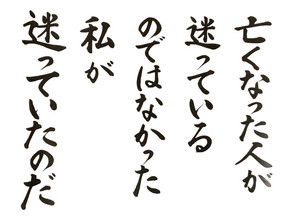 亡くなった人が
迷っている
のではなかった
私が
迷っていたのだ